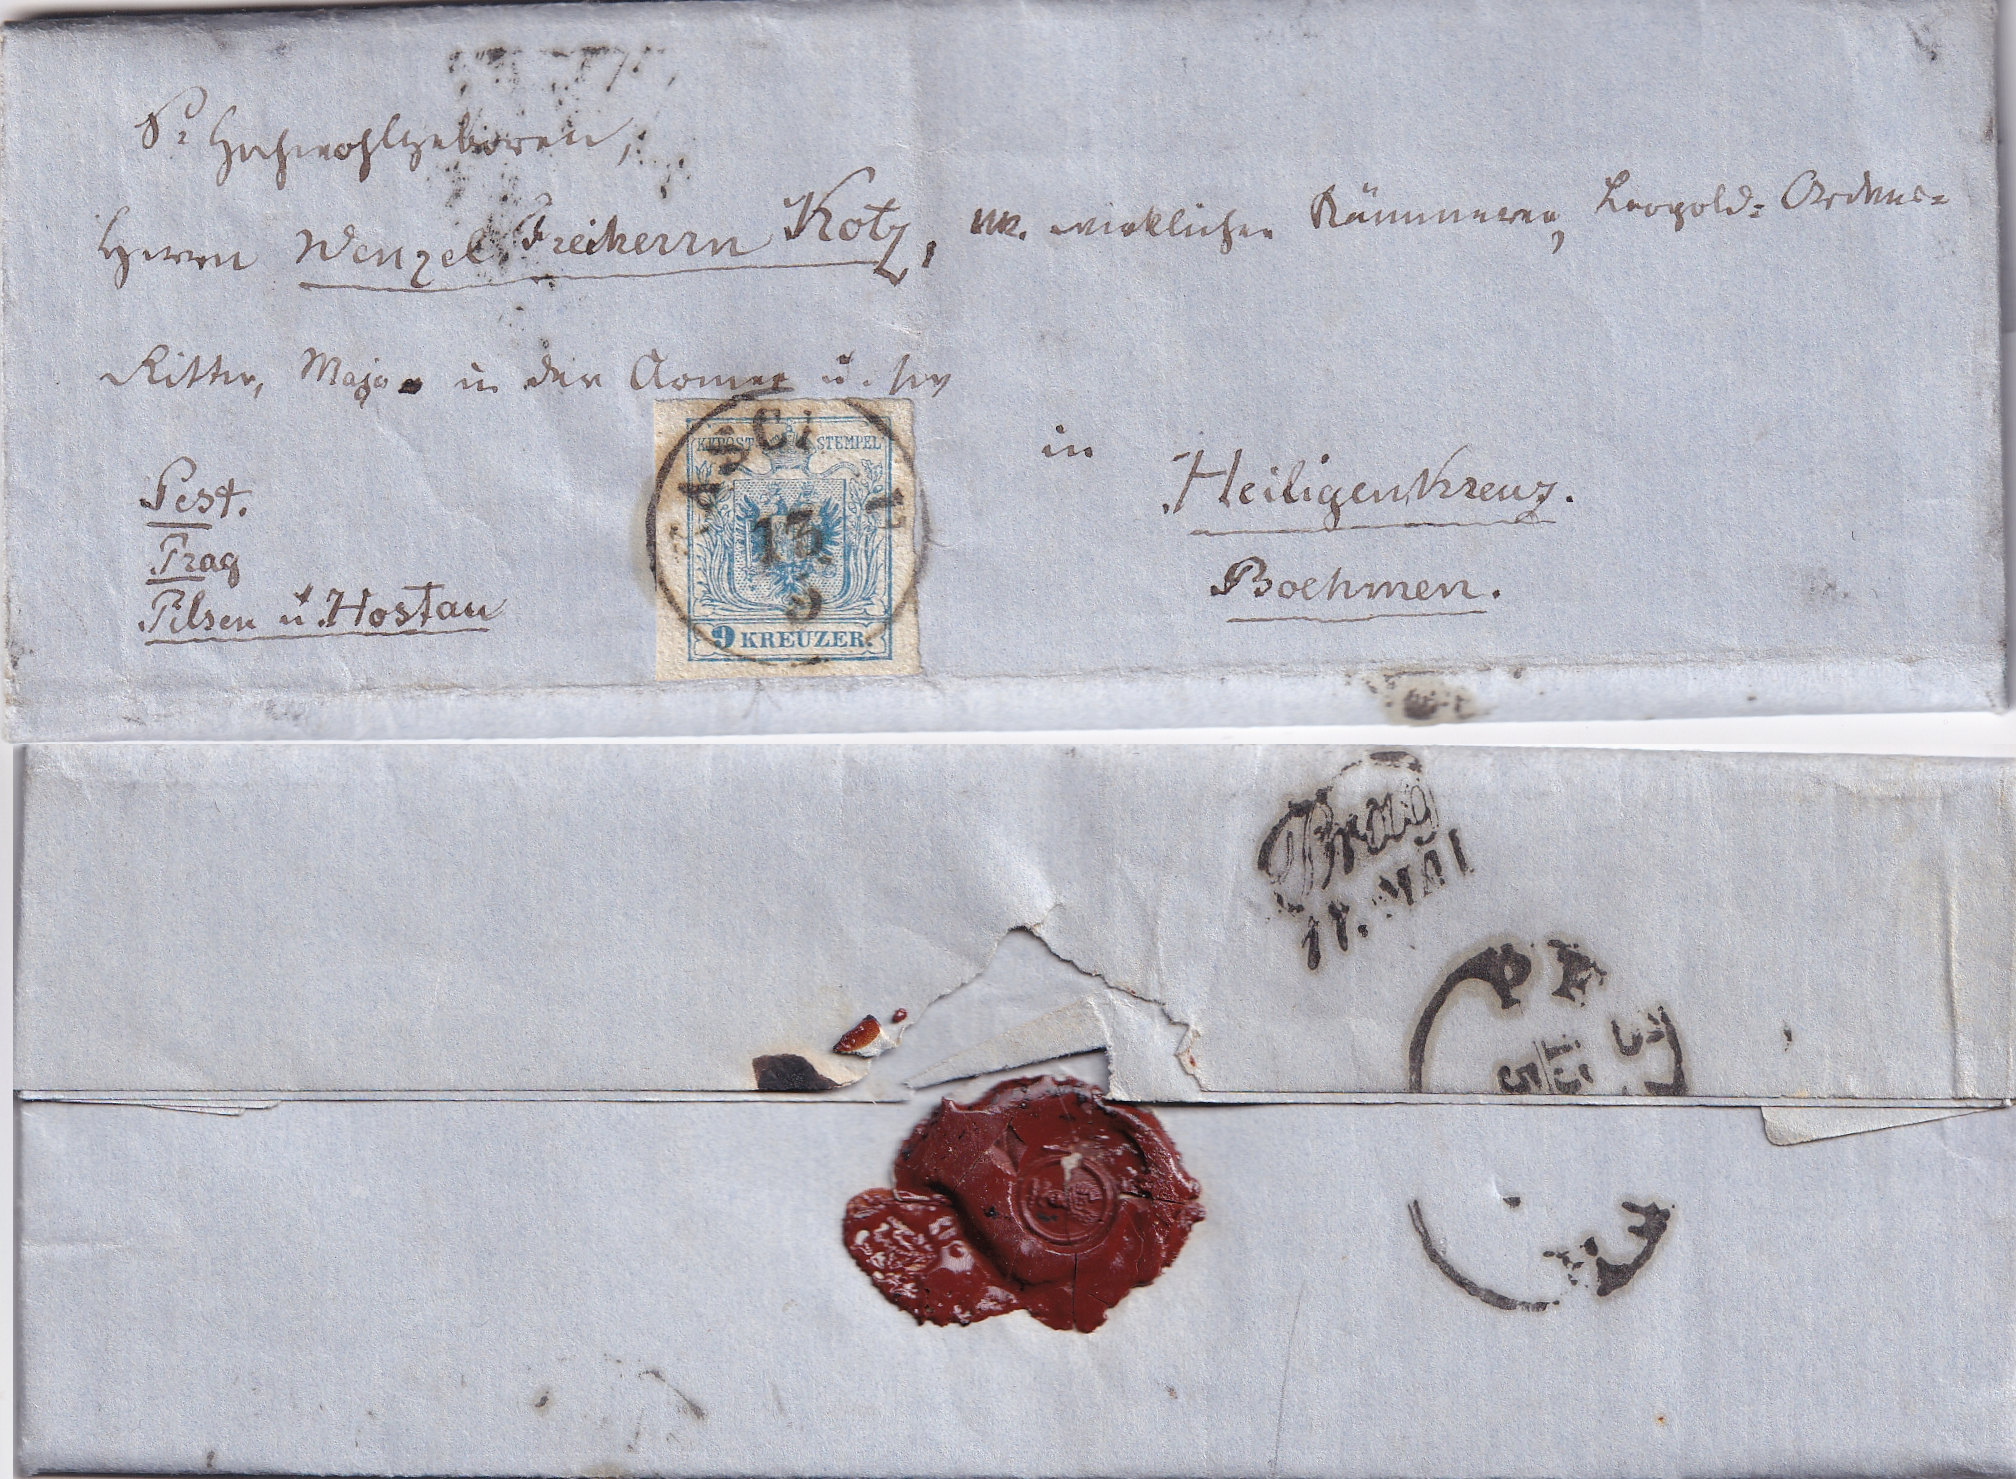 Sr Hochwohlgeboren,
Herrn Wenzel Freiherrn Kotz, kk. wirklichen Kämmerer, Leopold-Ordens-
Ritter, Major in der Armee u.
in
Heiligenkreuz.
Boehmen.
Pest.
Prag
Pilsen u Hostau
KKPOST STEMPEL
13
5
9 KREUZER.
Prag
17. MAI
15
5